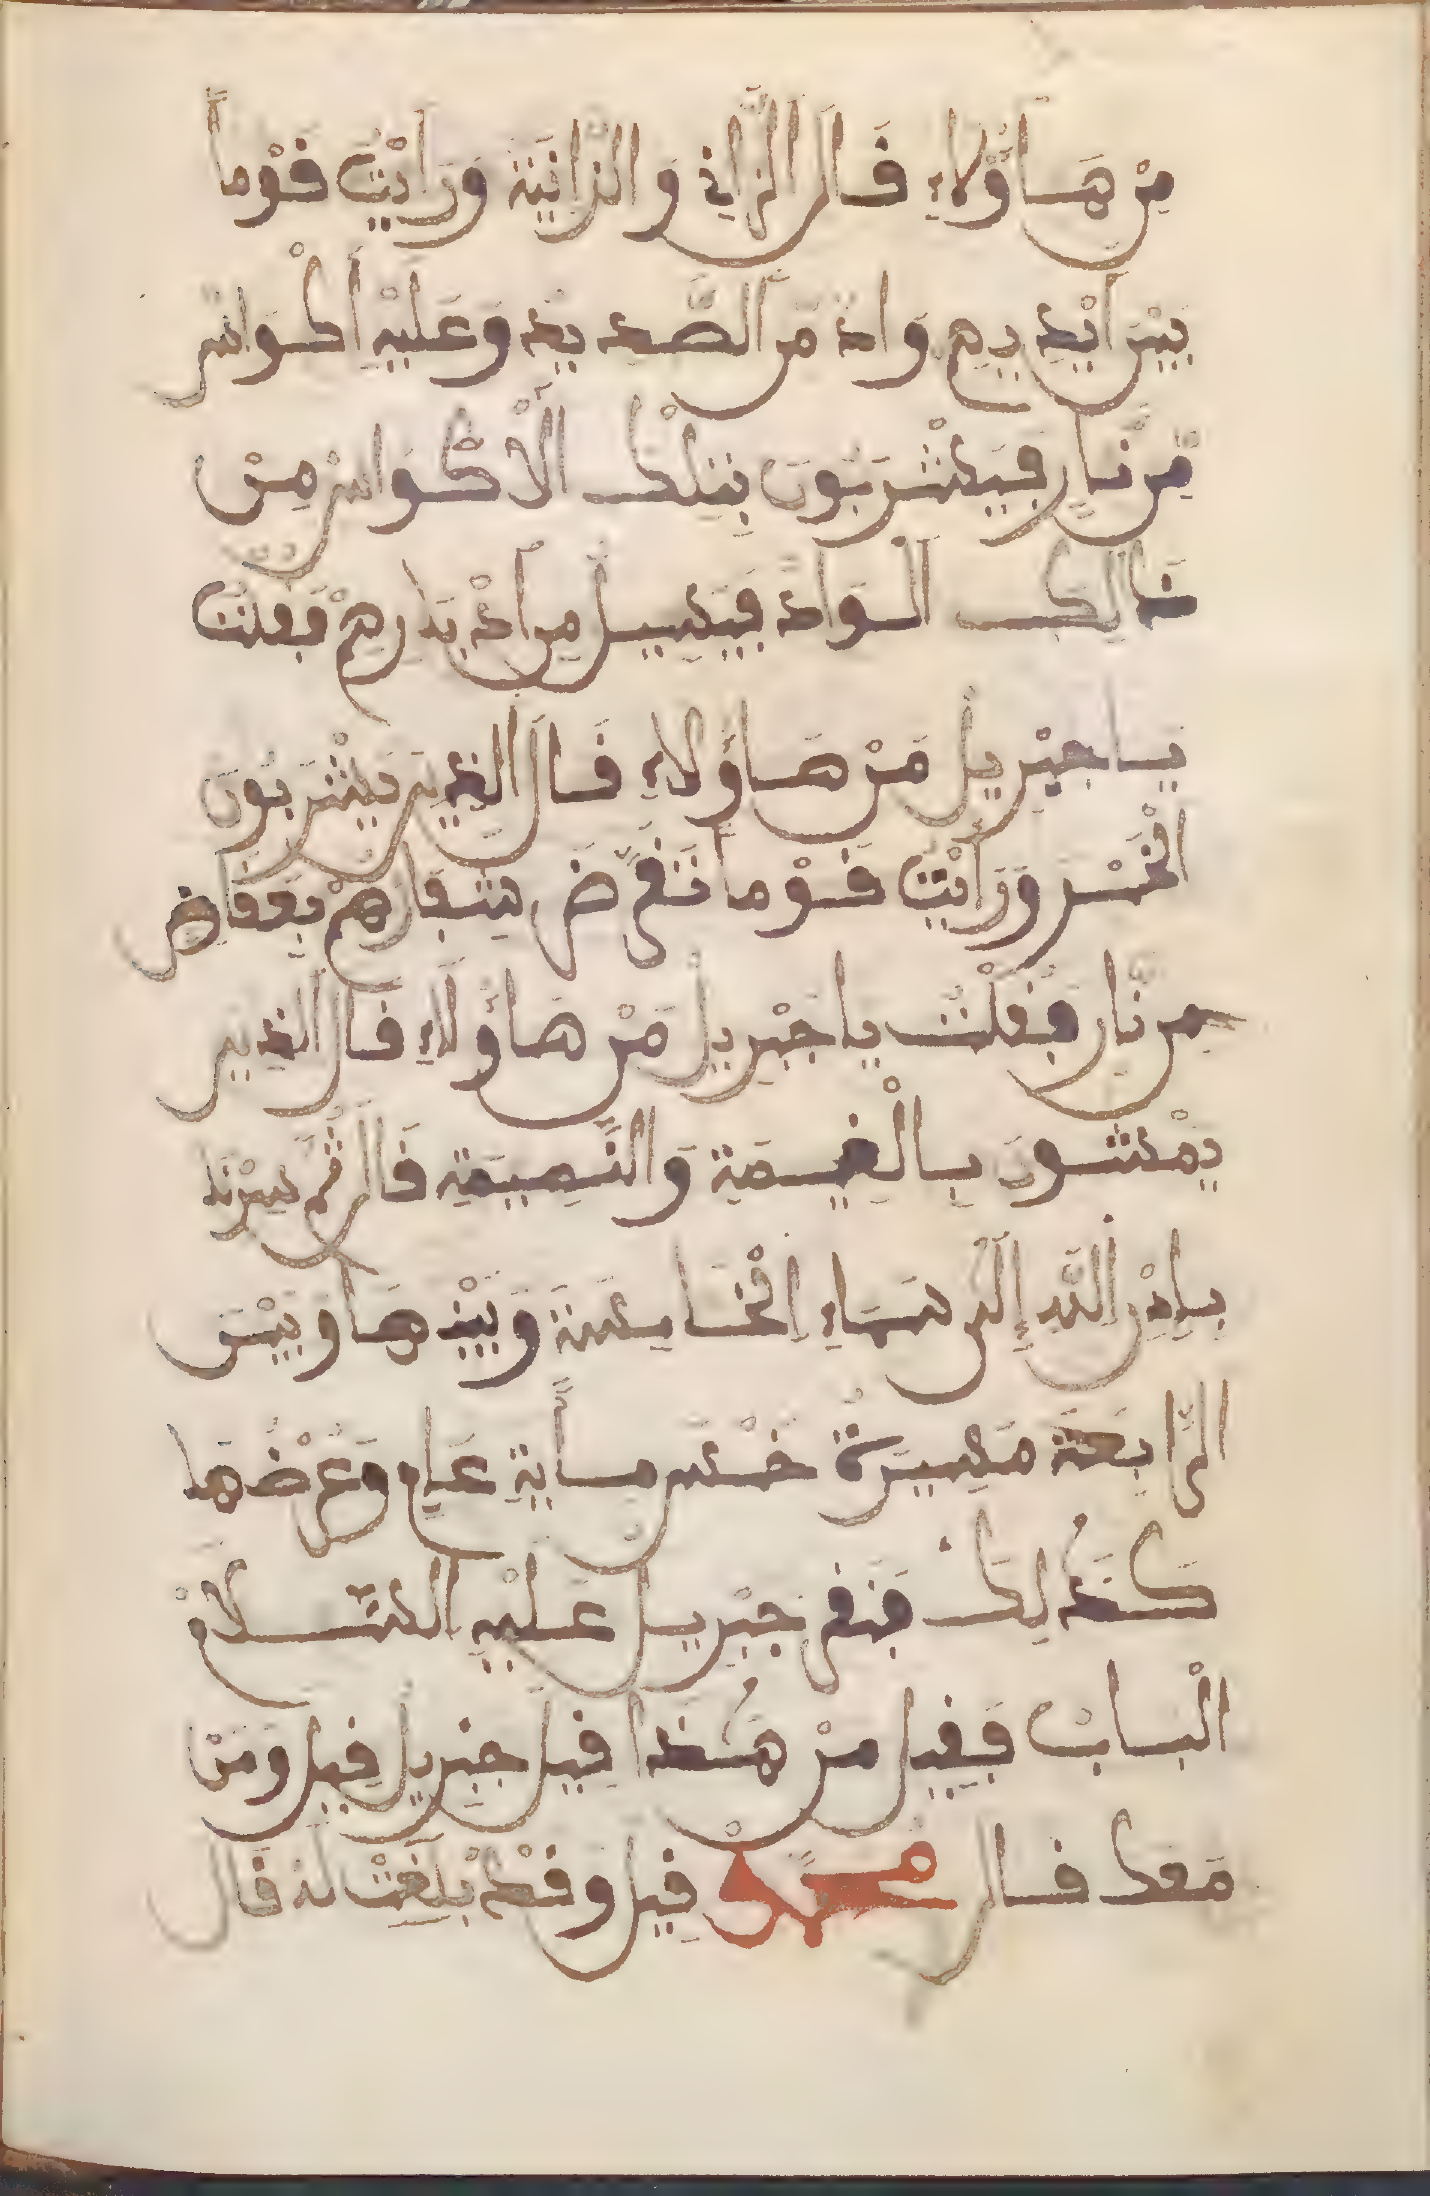 مِنْ هَاؤُلَاءِ قَالَ الزَّانِي وَالزَّانِيَة وَرَأَيْتُ قَوْماً
بَيْنَ أَيْدِيهِم وَادٍ مِّنَ الصَّدِيدِ وَعَلَيْهِ أَكْوَاسٌ
مِّن نَّارٍ فَيَشْرَبُونَ بِتِلْكَ الْأَكْوَاسِ مِنْ
ذَالِكَ الْوَادِ فَيَسِيلُ مِنْ أَدْبَارِهِمْ فَقُلْتُ
يَا جِبْرِيلُ مَنْ هَاؤُلَاءِ قَالَ الَّذِينَ يَشْرَبُونَ
الْخَمْرَ وَرَأَيْتُ قَوْماً تُقَرَّضُ شِفَارُهُمْ بِمَقَارِضَ
مِن نَّارٍ فَقُلْتُ يَا جِبْرِيلُ مَنْ هَاؤُلَاءِ قَالَ الَّذِينَ
يَمْشُونَ بِالْغِيمَةِ وَالنَّمِيمَةِ قَالَ ثُمَّ سِرْنَا
بِإِذْنِ اللَّهِ إِلَى سَمَاءِ الْخَامِسَةِ وَبَيْنَهَا وَبَيْنَ
الرَّابِعَةِ مَسِيرَةُ خَمْسِ مِأْيَةِ عَامٍ وَعَرْضُهَا
كَذَٰلِكَ فَنَقَرَ جِبْرِيلُ عَلَيْهِ السَّلَامُ
الْبَابَ فَقِيلَ مَنْ هَٰذَا قِيلَ جِبْرِيلُ قِيلَ وَمَنْ
مَعَكَ قَالَ مُحَمَّدٌ قِيلَ وَقَدْ بُعِثَ لَهُ قَالَ